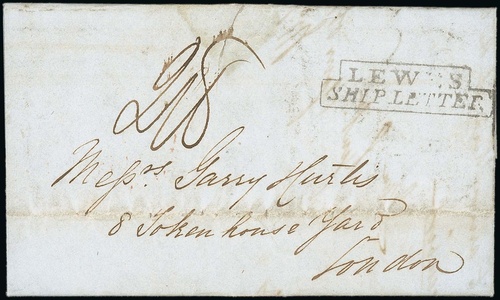 LEWES
SHIP LETTER
2/8
Messrs. Garry Curtis
8 Token house Yard
London